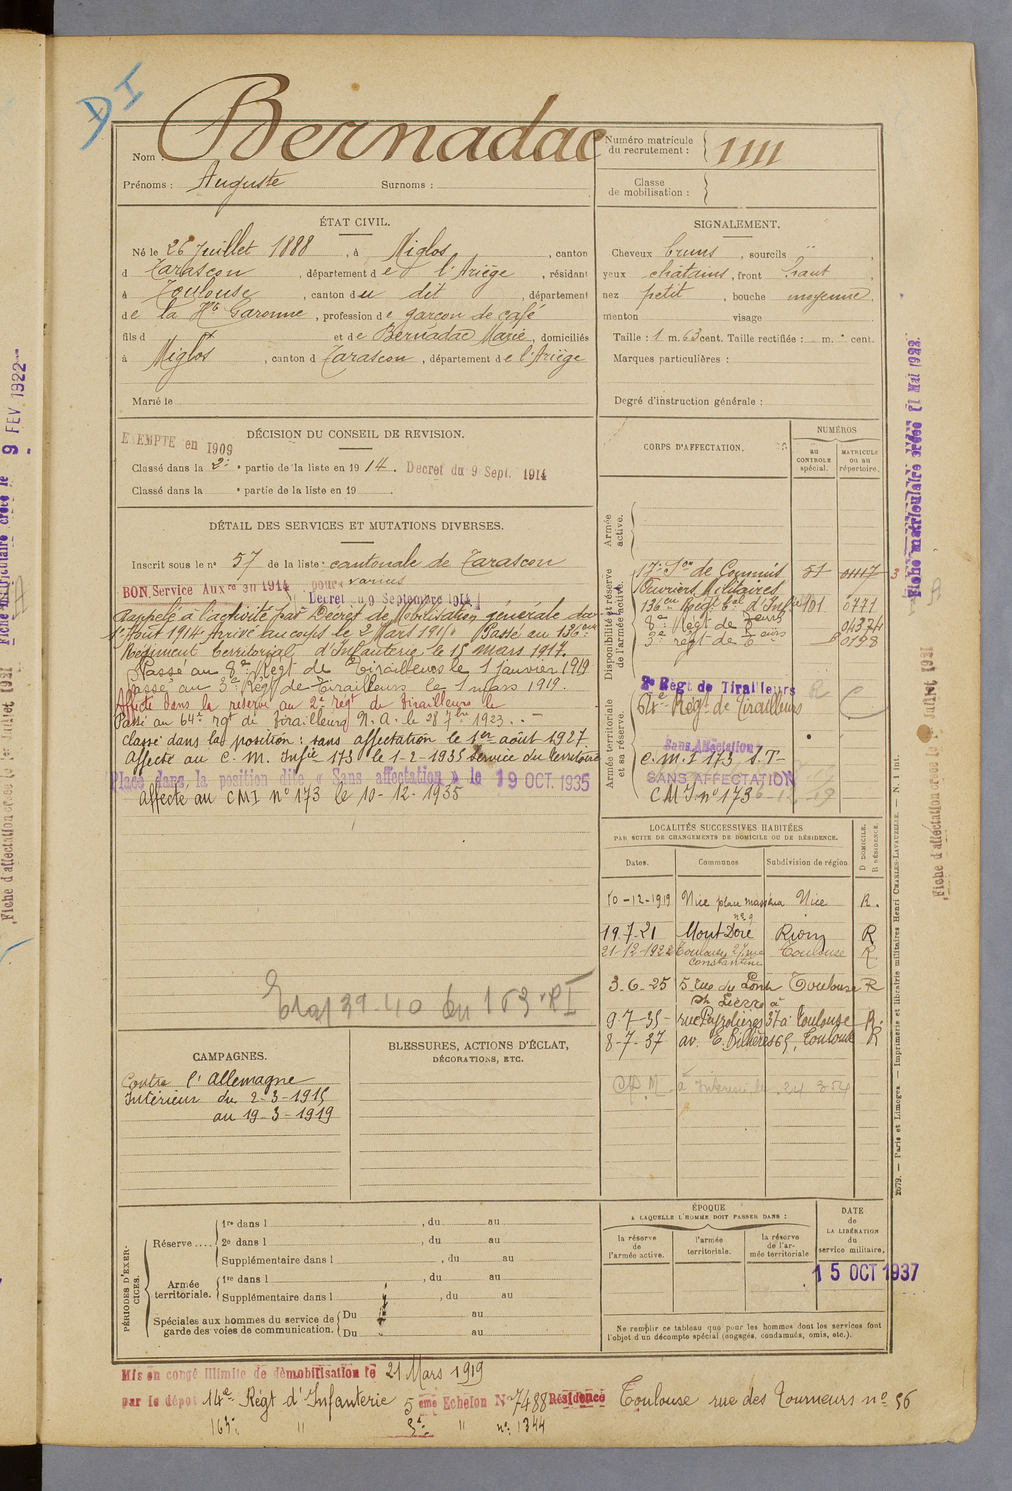 DI
Nom : Bernadac
Prénoms : Auguste Surnoms :
Numéro matricule du recrutement : 1111
Classe de mobilisation :
ÉTAT CIVIL.
Né le 26 Juillet 1888, à Miglos, canton
d Tarascon, département de l'Ariège, résidant
à Toulouse, canton du dit, département
de la Hte Garonne, profession de garçon de café
fils d et de Bernadac Marie, domiciliés
à Miglos, canton d Tarascon, département de l'Ariège
Marié le
SIGNALEMENT.
Cheveux bruns, sourcils "
yeux châtains, front haut
nez petit, bouche moyenne
menton visage
Taille : 1 m. 63 cent. Taille rectifiée : m. cent.
Marques particulières :
Degré d'instruction générale :
DÉCISION DU CONSEIL DE REVISION.
EXEMPTÉ en 1909
Classé dans la 2e partie de la liste en 1914. Decret du 9 Sept. 1914
Classé dans la e partie de la liste en 19
DÉTAIL DES SERVICES ET MUTATIONS DIVERSES.
Inscrit sous le n° 57 de la liste : cantonale de Tarascon
BON, Service Auxre en 1914 pour varices
Decret du 9 Septembre 1914
Rappelé à l'activité par Décret de Mobilisation générale du
1er Août 1914 Arrivé au corps le 2 Mars 1915. Passé au 136eme
Régiment territorial d'Infanterie le 15 mars 1917.
Passé au 8e Régt de Tirailleurs le 1 janvier 1919
Passé au 3e Régt de Tirailleurs le 1 mars 1919.
Affecté dans la réserve au 2e régt de tirailleurs le
Passé au 64e rgt de Tirailleurs N. A. le 28 7bre 1923.
Classé dans la position : sans affectation le 1er août 1927
Affecté au C. M. Infie 173 le 1-2-1935 Service du territoire
Placé dans la position dite « Sans affectation » le 19 OCT. 1935
Affecté au CMI n° 173 le 10-12-1935
CORPS D'AFFECTATION.
NUMÉROS
au CONTROLE spécial.
MATRICULE ou au répertoire.
Armée active.
Disponibilité et réserve de l'armée active.
17e Son de Commis 51 01117 3
Ouvriers Militaires
136eme Régt tal d'Infrie 101 0771
8e Régt de Teurs 04374
3e régt de Teurs 0198
Armée territoriale et sa réserve.
8e Régt de Tirailleurs R
64e Régt de Tirailleurs
Sans Affectation
C.M.I 173 S.T-
SANS AFFECTATION
CMI n° 173
LOCALITÉS SUCCESSIVES HABITÉES
PAR SUITE DE CHANGEMENTS DE DOMICILE OU DE RÉSIDENCE.
Dates. Communes Subdivision de région. D DOMICILE. R RÉSIDENCE.
10-12-1919 Nice Nice R.
19.7.21 Mont Dore Riom R
21-12-1922 Toulouse 27 rue Constantine Toulouse R.
3-6-25 5 rue du Pont St Pierre Toulouse R
9-7-35 rue Peyrolières 37 à Toulouse R.
8-7-37 av. E. Billières 65, Toulouse R
État 39-40 du 163 RI
CAMPAGNES.
Contre l'Allemagne
Intérieur du 2-3-1915
au 19-3-1919
BLESSURES, ACTIONS D'ÉCLAT,
DÉCORATIONS, ETC.
PÉRIODES D'EXERCICES.
Réserve.... 1re dans l , du au
2e dans l , du au
Supplémentaire dans l , du au
Armée territoriale. 1re dans l , du au
Supplémentaire dans l , du au
Spéciales aux hommes du service de garde des voies de communication. Du au
Du au
ÉPOQUE
A LAQUELLE L'HOMME DOIT PASSER DANS :
la réserve de l'armée active.
l'armée territoriale.
la réserve de l'armée territoriale
DATE de LA LIBÉRATION du service militaire.
15 OCT 1937
Ne remplir ce tableau que pour les hommes dont les services font
l'objet d'un décompte spécial (engagés, condamnés, omis, etc.).
Mis en congé illimité de démobilisation le 21 Mars 1919
par le dépôt 14e Régt d'Infanterie 5eme Echelon N° 7488 Résidence Toulouse rue des Tourneurs n° 56
163e " 5e " n° 1344
2079. — Paris et Limoges. — Imprimerie et librairie militaires Henri CHARLES-LAVAUZELLE. — N. 1 int.
Fiche matriculaire créée 11 Mai 1922
Fiche d'affectation créée le 1er Juillet 1921
Fiche matriculaire créée le 9 FEV. 1922
Fiche d'affectation créée le 1er Juillet 1921